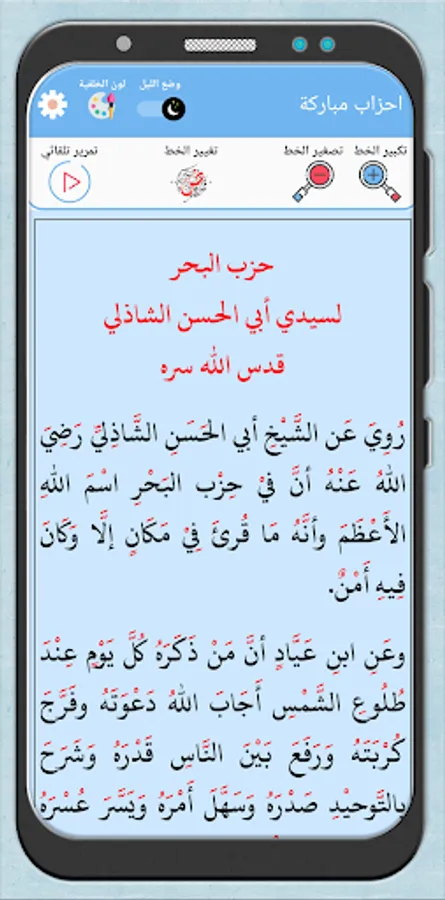 لون الخلفية
وضع الليل
احزاب مباركة
تكبير الخط
تصغير الخط
تغيير الخط
تمرير تلقائي
حزب البحر
لسيدي أبي الحسن الشاذلي
قدس الله سره
رُوِيَ عَن الشَّيْخِ أبي الحَسَنِ الشَّاذِليَّ رَضِيَ
اللهُ عَنْهُ أنَّ فيْ حِزْب البَحْرِ اسْمَ اللهِ
الأَعْظَمَ وأنَّهُ مَا قُرئَ فِيْ مَكَانٍ إلَّا وَكَانَ
فِيهِ أَمْنٌ.
وعَنِ ابنِ عَيَّادٍ أنَّ مَنْ ذَكَرَهُ كُلَّ يَوْمٍ عِنْدَ
طُلُوعِ الشَّمْسِ أَجَابَ اللهُ دَعْوَتَهُ وفَرَّجَ
كُرْبَتَهُ وَرَفَعَ بَيْنَ النَّاسِ قَدْرَهُ وَشَرَحَ
بِالتَّوحيْدِ صَدْرَهُ وَسَهَّلَ أَمْرَهُ وَيَسَّرَ عُسْرَهُ